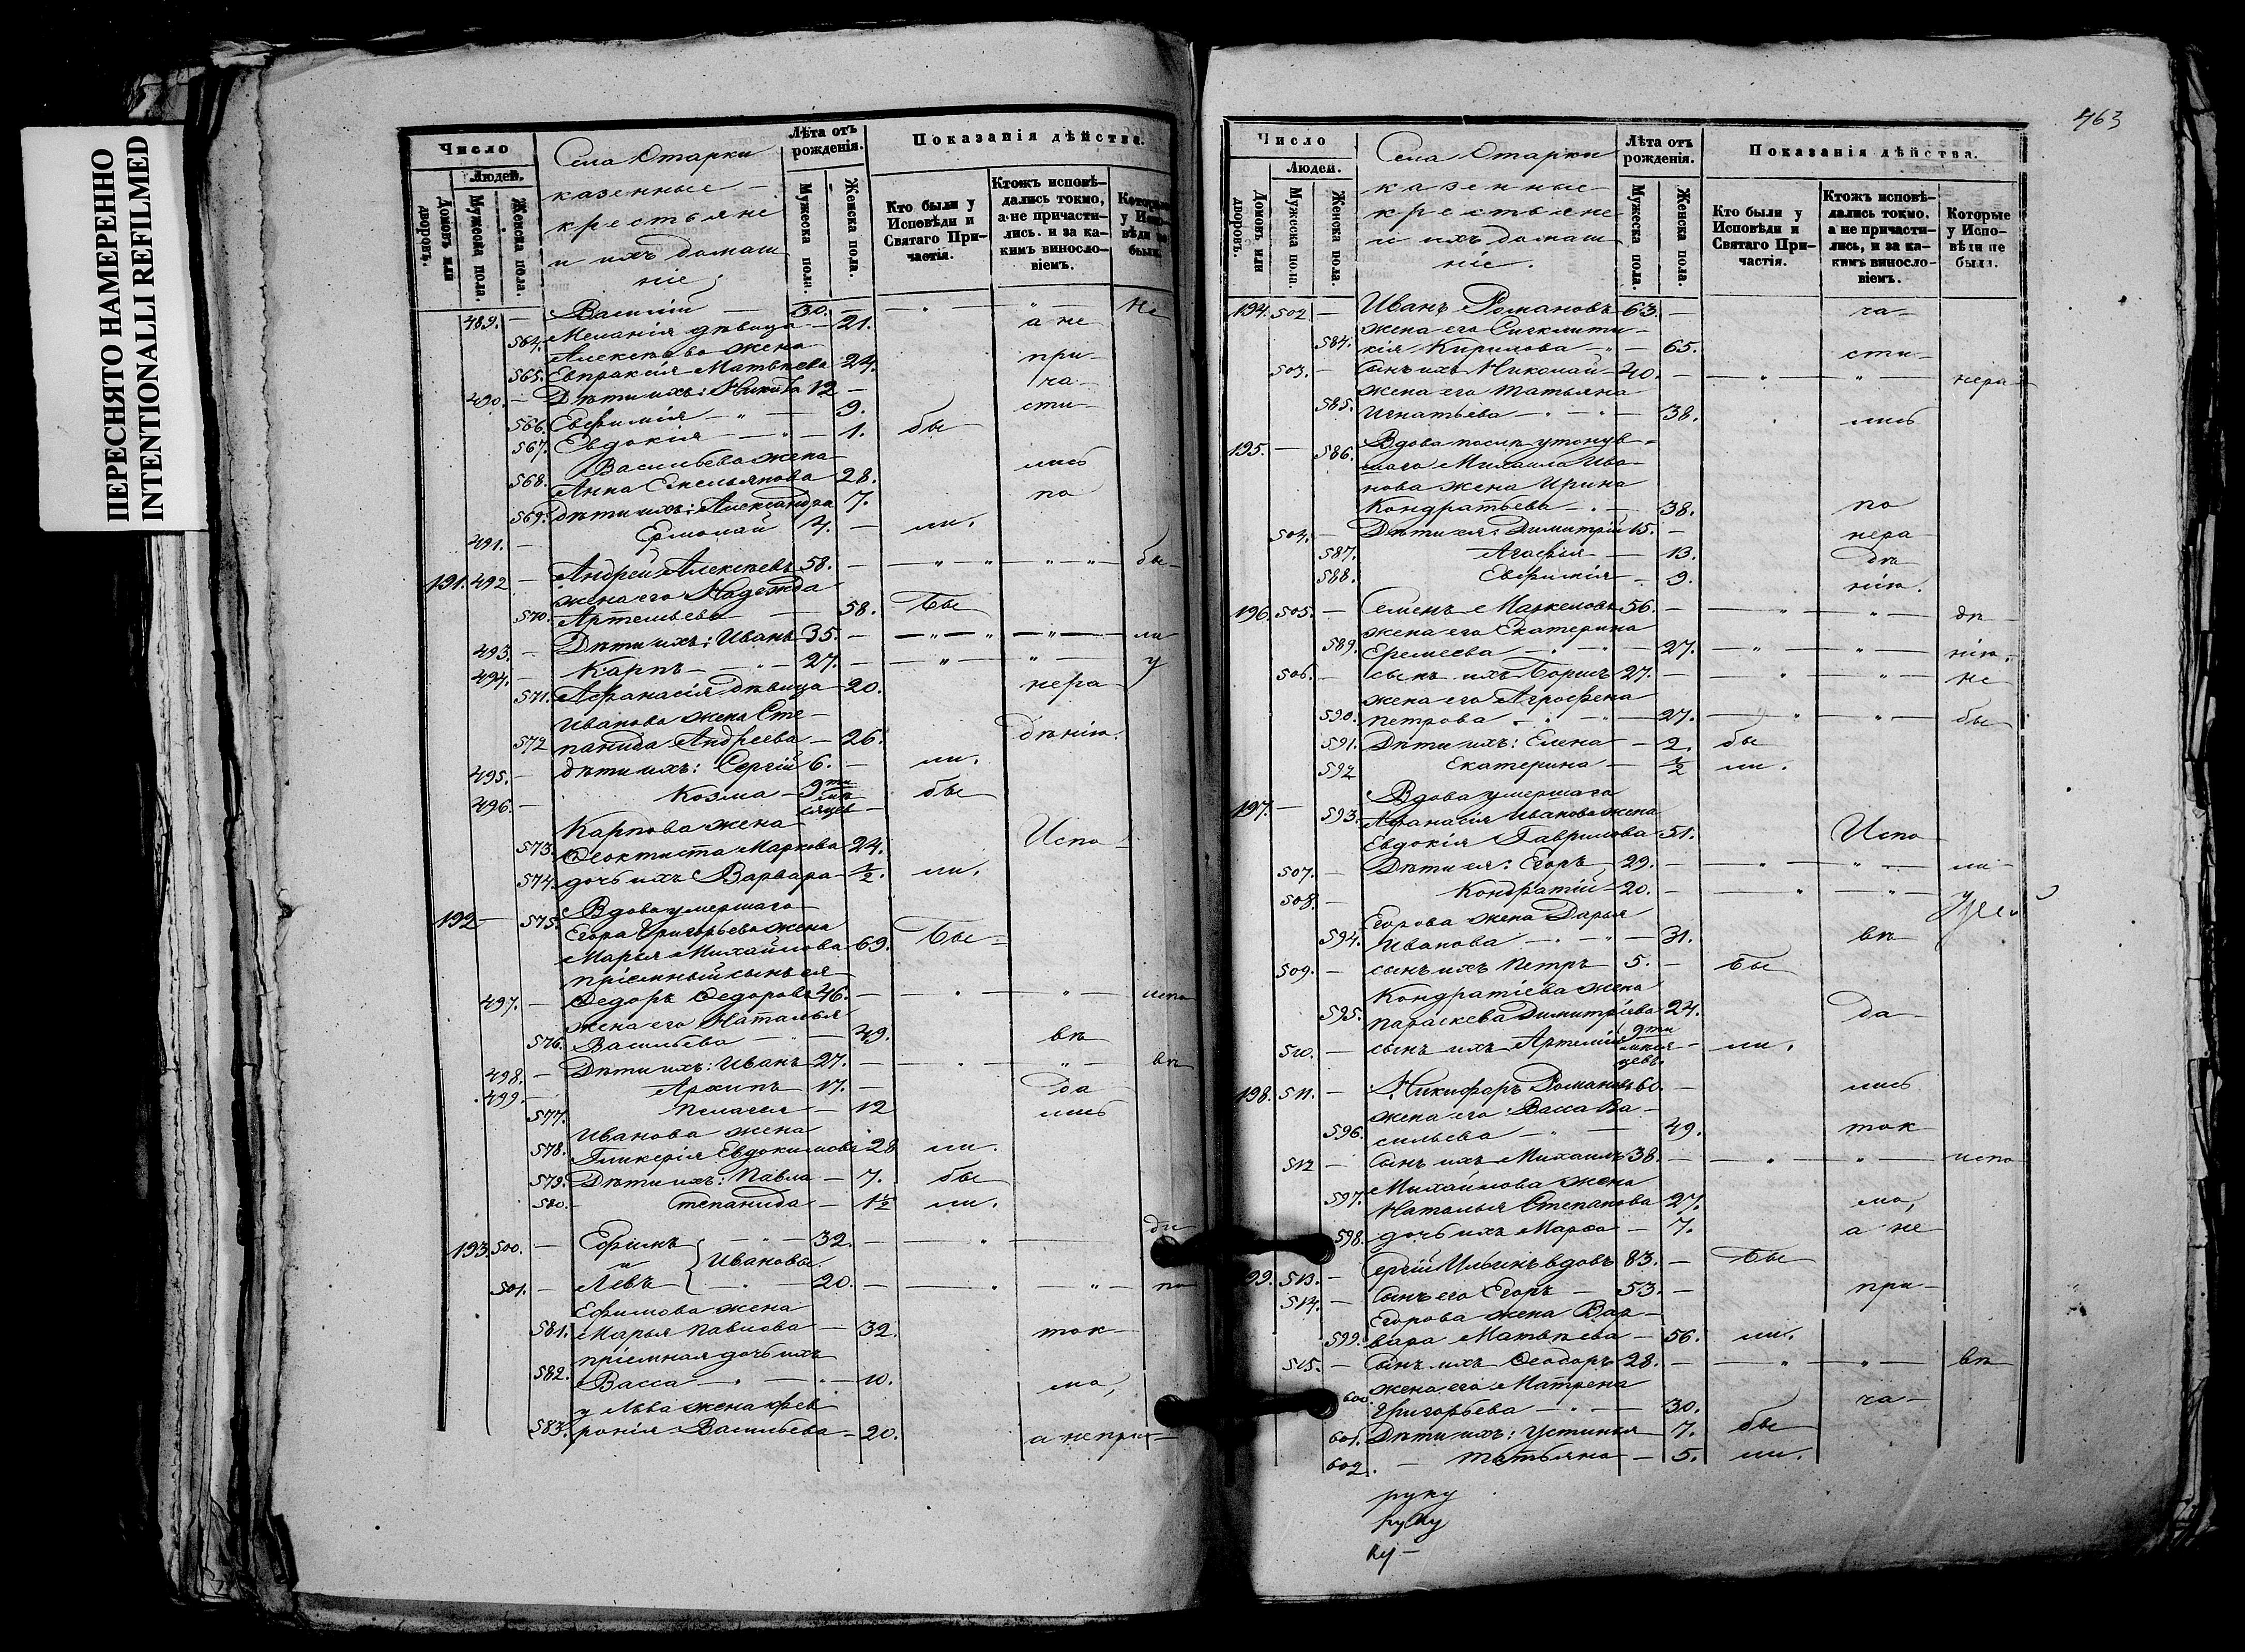 ПЕРЕСНЯТО НАМЕРЕННО
INTENTIONALLI REFILMED
Число
Людей.
Домовъ или дворовъ.
Мужеска пола.
Женска пола.
Села Отарки
казенные
крестьяне
и ихъ домаш
ніе;
Лѣта отъ рожденія.
Мужеска пола.
Женска пола.
Показанія дѣйства.
Кто были у Исповѣди и Святаго Причастія.
Ктожъ исповѣдались токмо, а не причастились. и за какимъ винословіемъ.
489. — Василій — 30. — Не
564. Меланія дѣвица — 21. а не
Алексѣева жена
565. Евпраксія Матвѣева 24. при-
490. — Дѣти ихъ: Никита 12 — ча-
566. Евфимія — 9. сти-
567. Евдокія — 1. бы
Васильева жена
568. Анна Емельянова 28. лись
569. дѣти ихъ: Александра 7. по
491. — Ермолай 4. — ли.
191. 492 — Андрей Алексѣевъ 58. — бы-
жена его Надежда
570. Артемьева — 58. Бы
493. — Дѣти ихъ: Иванъ 35. — ли
494. — Карпъ — 27. — у
571. Афанасія дѣвица 20. нера
Иванова жена Сте-
572 панида Андреева — 26. дѣнію.
495. — дѣти ихъ: Сергій 6. — ли.
496. — Козма — 9ти мѣсяцев — бы
Карпова жена
573. Феоктиста Маркова 24. Испо-
574. дочь ихъ Варвара — 1/2. ли.
192 — 575. Вдова умершаго
Егора Григорьева жена
Марья Михайлова 69. Бы-
пріемный сынъ ея
497. — Федоръ Федоровъ 46. — испо
жена его Наталья
576. Васильева — 49. вѣ
498. — Дѣти ихъ: Иванъ 27. — вѣ
499. — Архипъ 17. — да
577. Пелагея — 12 лись
Иванова жена
578. Гликерія Евдокимова 28 ли.
579. Дѣти ихъ: Павла — 7. бы
580. Степанида — 1 1/2 ли.
193. 500. — Ефимъ — 32. — ди
и Ивановы.
501. — Левъ — 20. — по
Ефимова жена
581. Марья Павлова — 32. ток-
пріемная дочь ихъ
582. Васса — 10. мо,
у Льва жена Фев
583. ронія Васильева — 20. а непри-
463
Число
Людей.
Домовъ или дворовъ.
Мужеска пола.
Женска пола.
Села Отарки
казенные
крестьяне
и ихъ домаш
ніе.
Лѣта отъ рожденія.
Мужеска пола.
Женска пола.
Показанія дѣйства.
Кто были у Исповѣди и Святаго Причастія.
Ктожъ исповѣдались токмо, а не причастились, и за какимъ винословіемъ.
Которые у Исповѣди не были.
194. 502. — Иванъ Романовъ 63. — ча-
жена его Сигклити-
584. кія Кирилова — 65. сти-
503. — Сынъ ихъ Николай 40. — нера
жена его Татьяна
585. Игнатьева — 38. лись
195. — 586. Вдова послѣ утонув-
шаго Михаила Ива-
нова жена Ирина
Кондратьева — 38. по
504. — Дѣти ея: Димитрій 15. — нера
587. Агафія — 13. дѣ
588. Евфимія — 9. нію.
196. 505. — Семенъ Маркеловъ 56. — дѣ
жена его Екатерина
589. Еремеева — 27. нію.
506. — сынъ ихъ Борисъ 27. — не
жена его Агрофена
590. Петрова — 27. бы
591. Дѣти ихъ: Елена — 2. бы
592 Екатерина — 1/2 ли.
197. — 593. Вдова умершаго
Афанасія Иванова жена
Евдокія Гаврилова 51. Испо
507. — Дѣти ея: Егоръ 29. — ли
508. — Кондратій 20. —
Егорова жена Дарья
594. Иванова — 31. вѣ
509. — сынъ ихъ Петръ 5. — Бы
Кондратіева жена
595. Параскева Димитріева 24. да
510. — сынъ ихъ Артемій 9ти мѣсяцевъ — ли.
198. 511. — Никифоръ Романовъ 60. — лись
жена его Васса Ва-
596. сильева — 49. ток
512 — Сынъ ихъ Михаилъ 38. — испо
Михайлова жена
597. Наталья Степанова 27. мо,
598. дочь ихъ Марфа — 7. а не
99. 513. — Сергій Ильинъ вдовъ 83. — Бы
514. — Сынъ его Егоръ — 53. — при-
Егорова жена Вар-
599. вара Матвѣева — 56. ли.
515. — Сынъ ихъ Феодоръ 28. — вѣ
жена его Матрена
600 Григорьева — 30. ча-
601. Дѣти ихъ: Устинья 7. бы
602. Татьяна — 5. ли.
руку
руку